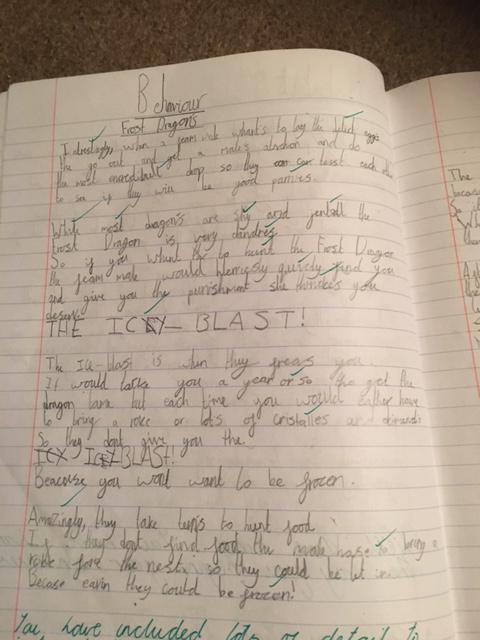 Behaviour
Frost Dragons
Intrestingly, when a feam male whant's to lay the eggs
the go out and get a males atnchon and do
the most encredibult drop so they can tesst each other
to see if they will be good parnies.
While most dragon's are shy and jentall the
Frost Dragon is very dandres.
So if you whant to to hunt the Frost Dragon
the feam male would qwicly find you
and give you the punishment she thinkes you
deserve
THE ICEY BLAST!
The Ice-blast is when they freas you.
It would take you a year or so to get the
dragon tame but each time you would eather have
to bring a roke or lots of cristalles and dimands
So they dont give you the.
ICY BLAST!
Beacause you wont want to be frozen.
Amazingly, they take turns to hunt food
If they dont find food the male hase to bring a
roke fore the nest, so they could be let in.
Becase eavin they could be frozen!
You have included lots of detail to
The
becaus